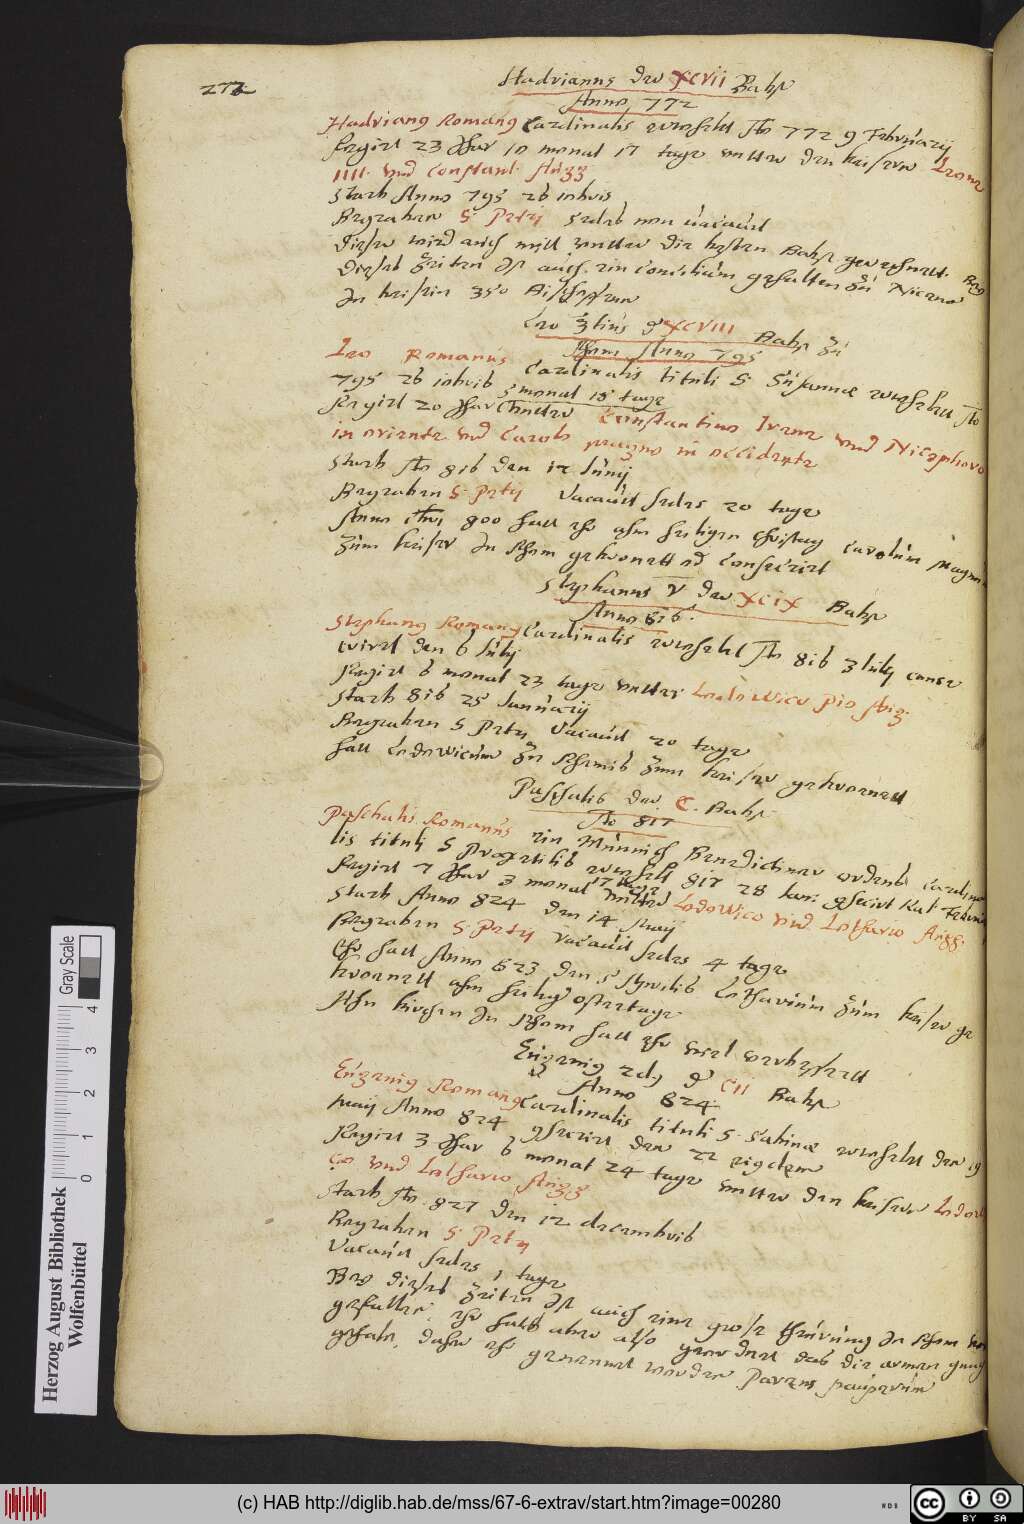 272
Hadrianus der XCVII Babst
Anno 772
Hadrianus Romanus Cardinalis erwehlett Ao 772 9 Februarij
Regirt 23 Jhar 10 monat 17 tage untter den keisern Leone
IIII. und Constant. Augg
Starb Anno 795 26 ...
Begraben S Petri Sedes non vacavit
Dieser wird auch mitt untter die besten Babst gerechnett. Bey
Dieses Zeiten ist auch ein Concilium gehalten zu Nicena
In beisein 350 Bischoffen
Leo 3tius d XCVIII Babst zu
Rhom Anno 795
Leo Romanus Cardinalis tituli S Susannae erwehlett Ao
795 26 ...
Regirt 20 Jhar 5 monat 18 tage untter Constantino Irene und Nicephoro
in oriente und Carolo magno in occidente
Starb Ao 816 den 12 Junij
Begraben S Petri Vacavit sedes 20 tage
Anno Chri 800 hatt ehr ahm heiligen Christag Carolum Magnum
zum keiser In Rhom gekronett ... Consecrirt
Stephanus V der XCIX Babst
Anno 816.
Stephanus Romanus Cardinalis erwehlet Ao 816 3 Julij conse
crirt den 6 Julij
Regirt 6 monat 23 tage untter Lodowico pio Aug.
Starb 816 25 Januarij
Begraben S Petri Vacavit 20 tage
hatt Lodowicum zu Rhemis zum keiser gekronnett
Paschalis der C. Babst
Ao 817
Paschalis Romanus ein Munnich Benedictiner ordens Cardina
lis tituli S Praxedis erwehlt 817 28 Jan: ...
Regirt 7 Jhar 3 monat 17 tage untter Lodowico und Lothario Augg.
Starb Anno 824 den 14 Maij
Begraben S Petri Vacavit sedes 4 tage
Ehr hatt Anno 823 den 5 Aprilis Lotharium zum keiser ge
kronett ahm heilig ostertage
Ahn kirchen In Rhom hatt ehr viel verbessertt
Eugenius 2dus d CII Babst
Anno 824
Eugenius Romanus Cardinalis tituli S Sabinae erwehlett den 19
Maij Anno 824 ... den 22 eigdem
Regirt 3 Jhar 6 monat 24 tage untter den keisern Lodowi
co und Lothario Augg
Starb Ao 827 den 12 decembris
Begraben S Petri
Vacavit sedes 1 tage
Bey dieses Zeiten ist auch eine grosse theurung In Rhom
gefallen, ehr hatts aber also geordnet das die armen gnug
gehabt, daher ehr genennet worden Parens pauperum
Herzog August Bibliothek
Wolfenbüttel
Gray Scale
0 1 2 3 4
(c) HAB http://diglib.hab.de/mss/67-6-extrav/start.htm?image=00280
WDB
cc BY SA